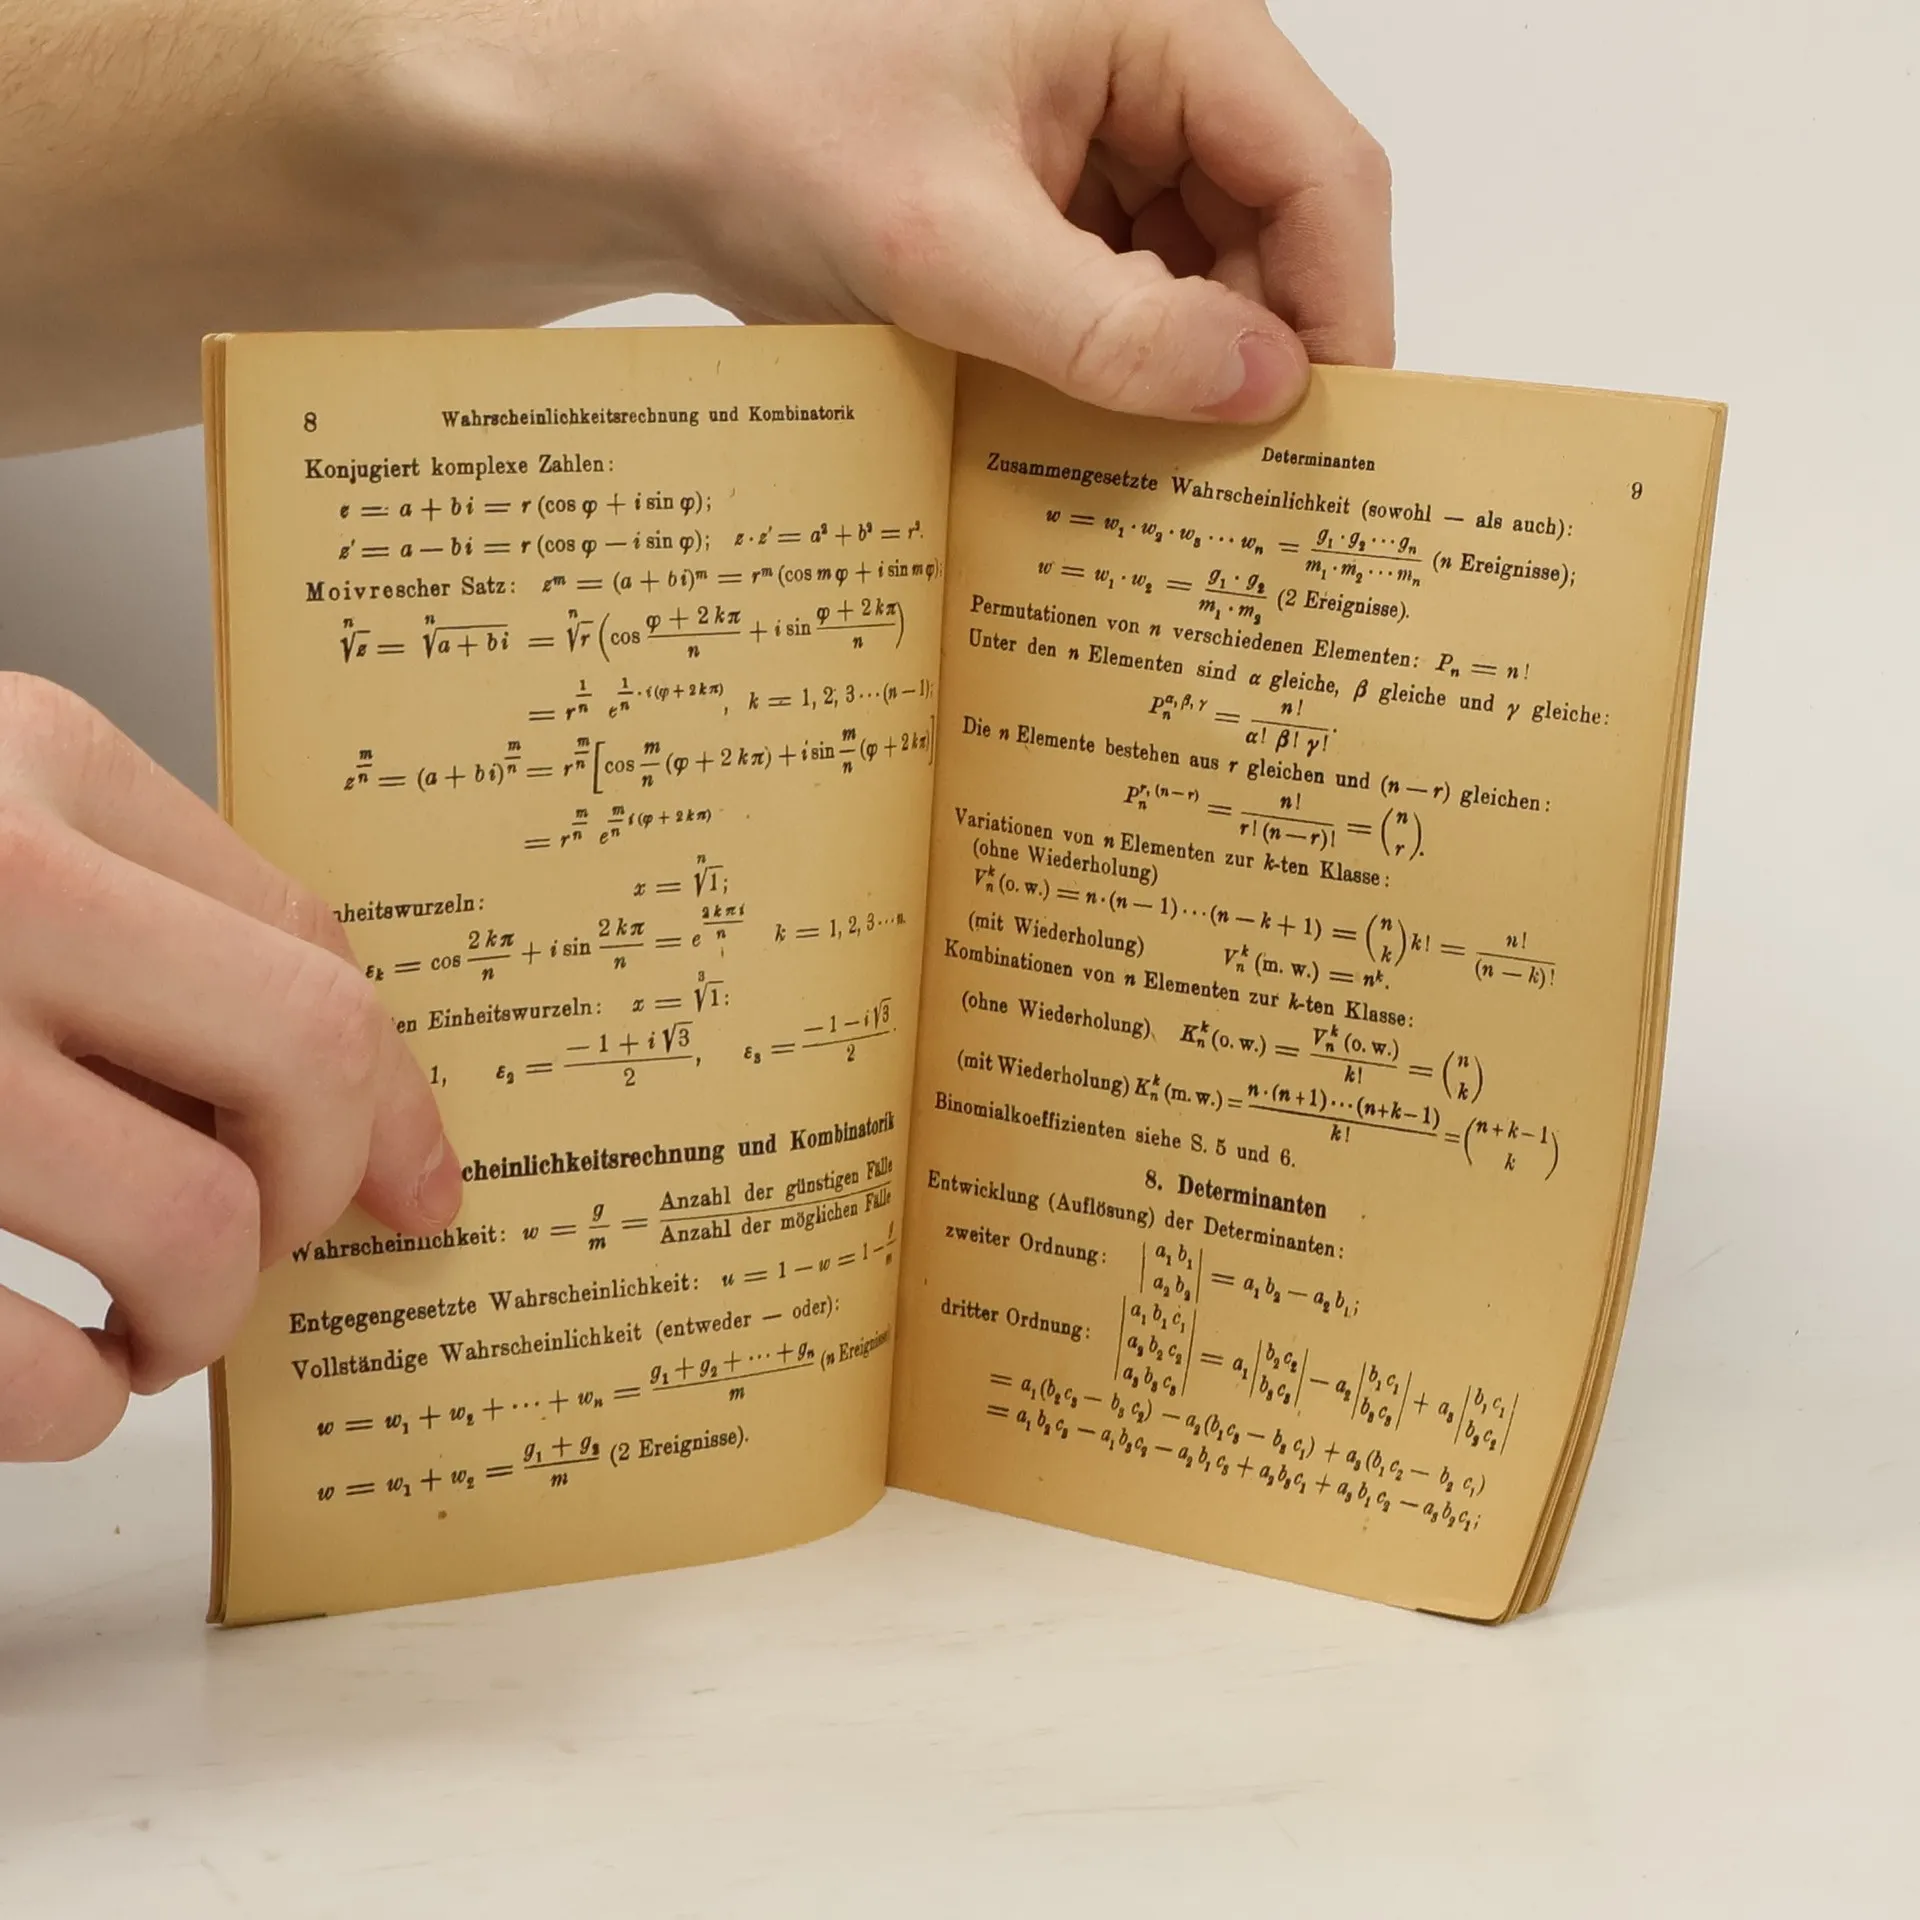 8 Wahrscheinlichkeitsrechnung und Kombinatorik
Konjugiert komplexe Zahlen:
z = a + bi = r (cos φ + i sin φ);
z' = a − bi = r (cos φ − i sin φ); z · z' = a² + b² = r².
Moivrescher Satz: zᵐ = (a + bi)ᵐ = rᵐ (cos m φ + i sin m φ);
ⁿ√z = ⁿ√(a + bi) = ⁿ√r (cos (φ + 2kπ)/n + i sin (φ + 2kπ)/n)
= r^(1/n) e^(1/n · i(φ + 2kπ)), k = 1, 2, 3 ··· (n − 1);
z^(m/n) = (a + bi)^(m/n) = r^(m/n) [cos m/n (φ + 2kπ) + i sin m/n (φ + 2kπ)]
= r^(m/n) e^(m/n i(φ + 2kπ))
x = ⁿ√1;
nheitswurzeln:
εₖ = cos 2kπ/n + i sin 2kπ/n = e^(2kπi/n) k = 1, 2, 3 ··· n.
en Einheitswurzeln: x = ³√1:
1, ε₂ = (−1 + i√3)/2, ε₃ = (−1 − i√3)/2.
cheinlichkeitsrechnung und Kombinatorik
Wahrscheinlichkeit: w = g/m = Anzahl der günstigen Fälle / Anzahl der möglichen Fälle
Entgegengesetzte Wahrscheinlichkeit: u = 1 − w = 1 − g/m
Vollständige Wahrscheinlichkeit (entweder — oder):
w = w₁ + w₂ + ··· + wₙ = (g₁ + g₂ + ··· + gₙ)/m (n Ereignisse)
w = w₁ + w₂ = (g₁ + g₂)/m (2 Ereignisse).
Determinanten 9
Zusammengesetzte Wahrscheinlichkeit (sowohl — als auch):
w = w₁ · w₂ · w₃ ··· wₙ = (g₁ · g₂ ··· gₙ)/(m₁ · m₂ ··· mₙ) (n Ereignisse);
w = w₁ · w₂ = (g₁ · g₂)/(m₁ · m₂) (2 Ereignisse).
Permutationen von n verschiedenen Elementen: Pₙ = n!
Unter den n Elementen sind α gleiche, β gleiche und γ gleiche:
Pₙ^(α, β, γ) = n!/(α! β! γ!).
Die n Elemente bestehen aus r gleichen und (n — r) gleichen:
Pₙ^(r, (n−r)) = n!/(r! (n − r)!) = (n r).
Variationen von n Elementen zur k-ten Klasse:
(ohne Wiederholung)
Vₙᵏ (o. w.) = n · (n − 1) ··· (n − k + 1) = (n k) k! = n!/(n − k)!
(mit Wiederholung) Vₙᵏ (m. w.) = nᵏ.
Kombinationen von n Elementen zur k-ten Klasse:
(ohne Wiederholung) Kₙᵏ (o. w.) = Vₙᵏ (o. w.)/k! = (n k)
(mit Wiederholung) Kₙᵏ (m. w.) = n · (n + 1) ··· (n + k − 1)/k! = (n + k − 1 k)
Binomialkoeffizienten siehe S. 5 und 6.
8. Determinanten
Entwicklung (Auflösung) der Determinanten:
zweiter Ordnung: |a₁ b₁ / a₂ b₂| = a₁ b₂ − a₂ b₁;
dritter Ordnung: |a₁ b₁ c₁ / a₂ b₂ c₂ / a₃ b₃ c₃| = a₁ |b₂ c₂ / b₃ c₃| − a₂ |b₁ c₁ / b₃ c₃| + a₃ |b₁ c₁ / b₂ c₂|
= a₁ (b₂ c₃ − b₃ c₂) − a₂ (b₁ c₃ − b₃ c₁) + a₃ (b₁ c₂ − b₂ c₁)
= a₁ b₂ c₃ − a₁ b₃ c₂ − a₂ b₁ c₃ + a₂ b₃ c₁ + a₃ b₁ c₂ − a₃ b₂ c₁;